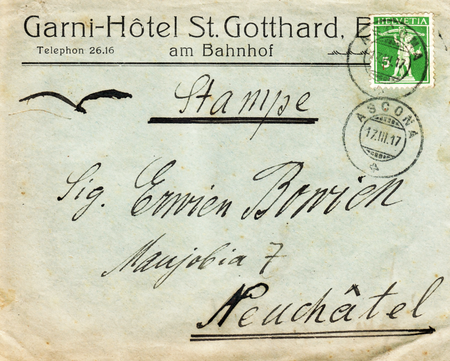 Garni-Hôtel St. Gotthard,
HELVETIA
Telephon 26.16
am Bahnhof
Stampe
ASCONA
17.III.17
Sig. Erwien Bowien
Maujobia 7
Neuchâtel